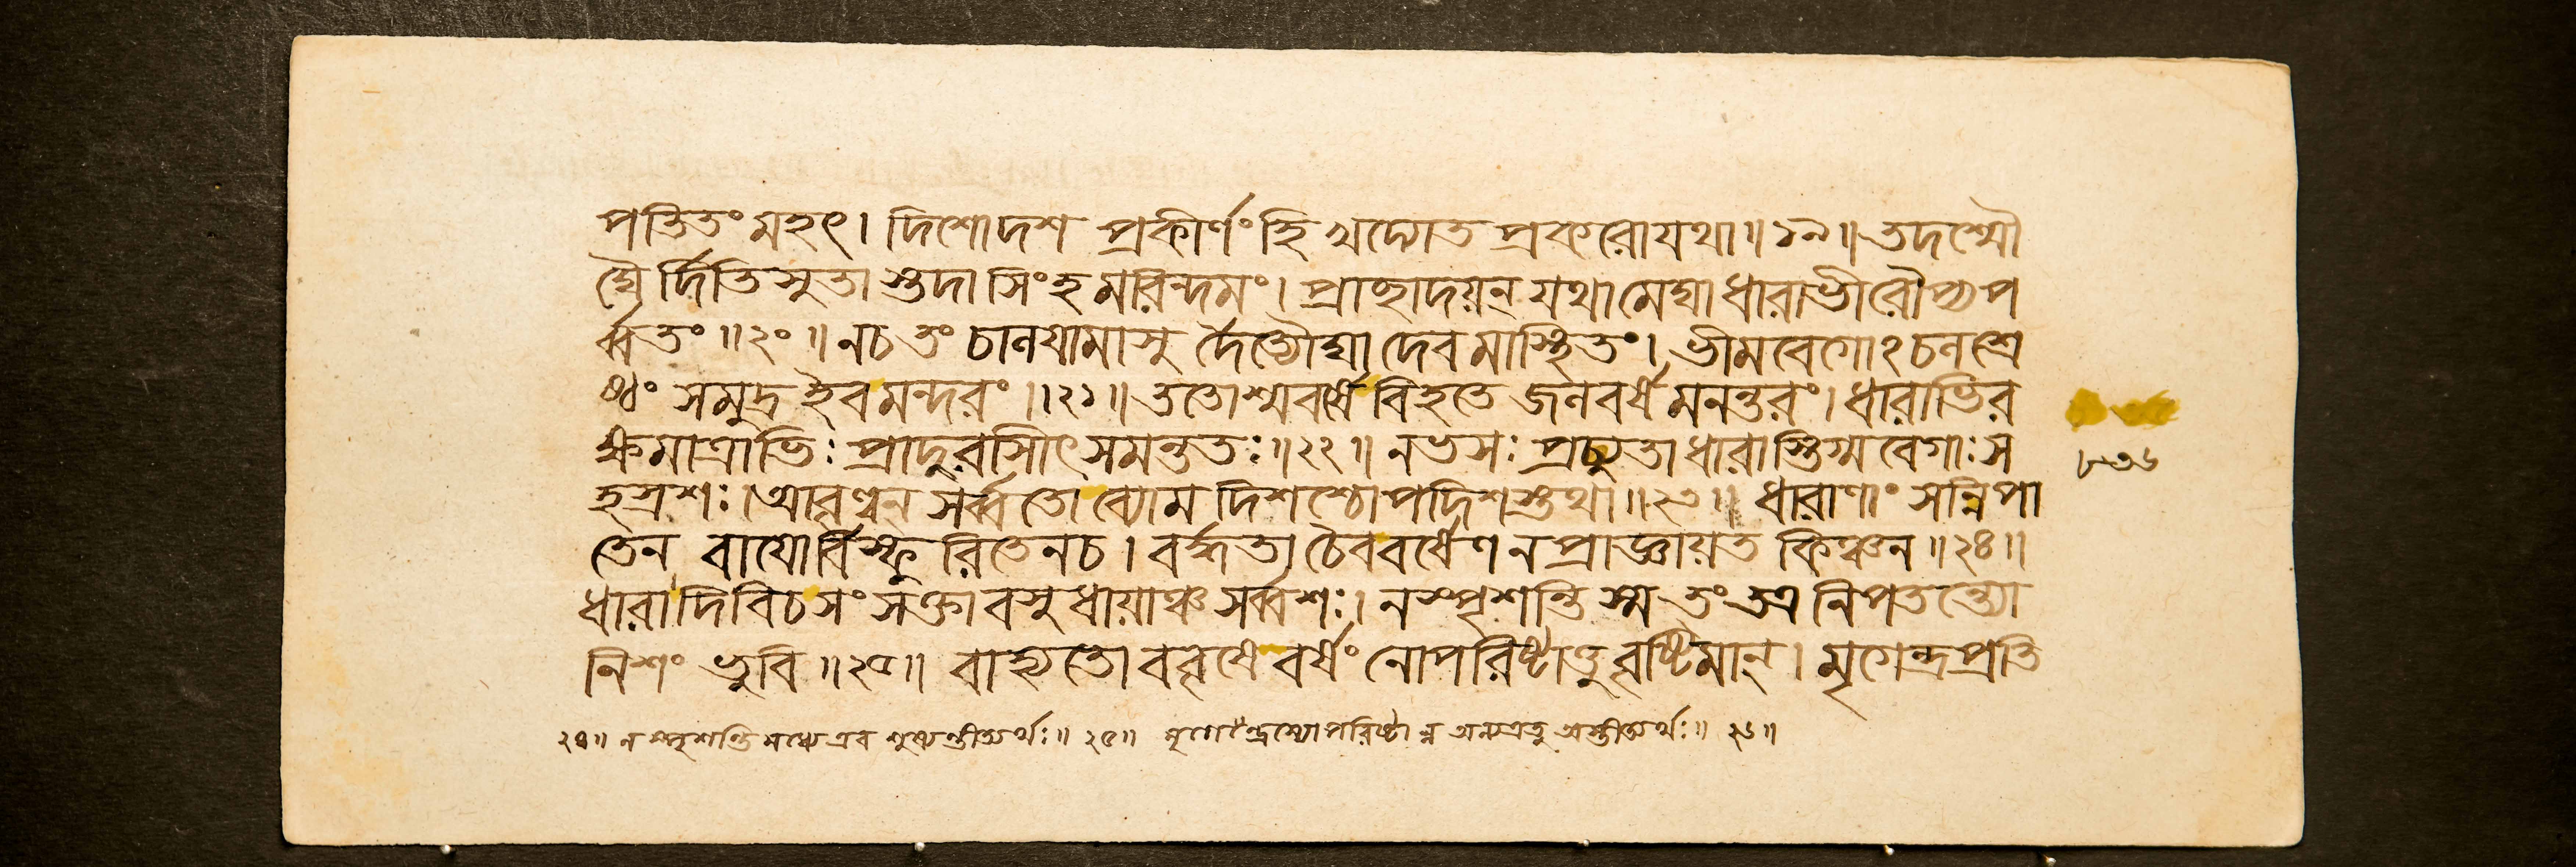 পতিতং মহৎ। দিশোদশ প্রকীর্ণং হি খদ্যোত প্রকরোযথা॥১৯॥ তদশ্মৌ
ঘৈর্দিতিসুতা স্তদা সিংহ মরিন্দমং। প্রাচ্ছাদয়ন্ যথামেঘা ধারাভীরৌপ্যপ
র্ব্বতং॥২০॥ নচ তং চালয়ামাসু র্দৈত্যৌঘা দেব মাস্থিতং। ভীমবেগোঽচলশ্রে
ষ্ঠং সমুদ্র ইৈব মন্দরং॥২১॥ ততোশ্মবর্ষে বিহতে জলবর্ষ মনন্তরং। ধারাভির
ক্ষমাত্রাভিঃ প্রাদুরাসীৎ সমন্ততঃ॥২২॥ নভসঃ প্রচ্যুতা ধারাস্তিগ্মবেগাঃ স
হস্রশঃ। আবৃণ্বন্ সর্ব্বতো ব্যোম দিশশ্চোপদিশস্তথা॥২৩॥ ধারাণাং সন্নিপা
তেন বায়োর্বিস্ফু রিতেনচ। বর্দ্ধতা চৈব বর্ষেণ নপ্রাজ্ঞায়ত কিঞ্চন॥২৪॥
ধারা দিবিচ সংসক্তা বসুধায়াঞ্চ সর্ব্বশঃ। নস্পৃশন্তি স্ম তং তত্র নিপতন্ত্যো
নিশং ভুবি॥২৫॥ বাহ্যতো ববৃষে বর্ষং নোপরিষ্টাত্তু বৃষ্টিমান্। মৃগেন্দ্রপ্রতি
৮৩৬
২৪॥ ন স্পৃশন্তি মধ্যে এব শুষ্যন্তীত্যর্থঃ॥ ২৫॥ মৃগেন্দ্রস্যোপরিষ্টা ন্ন অন্যত্রতু অস্তীত্যর্থঃ॥ ২৬॥